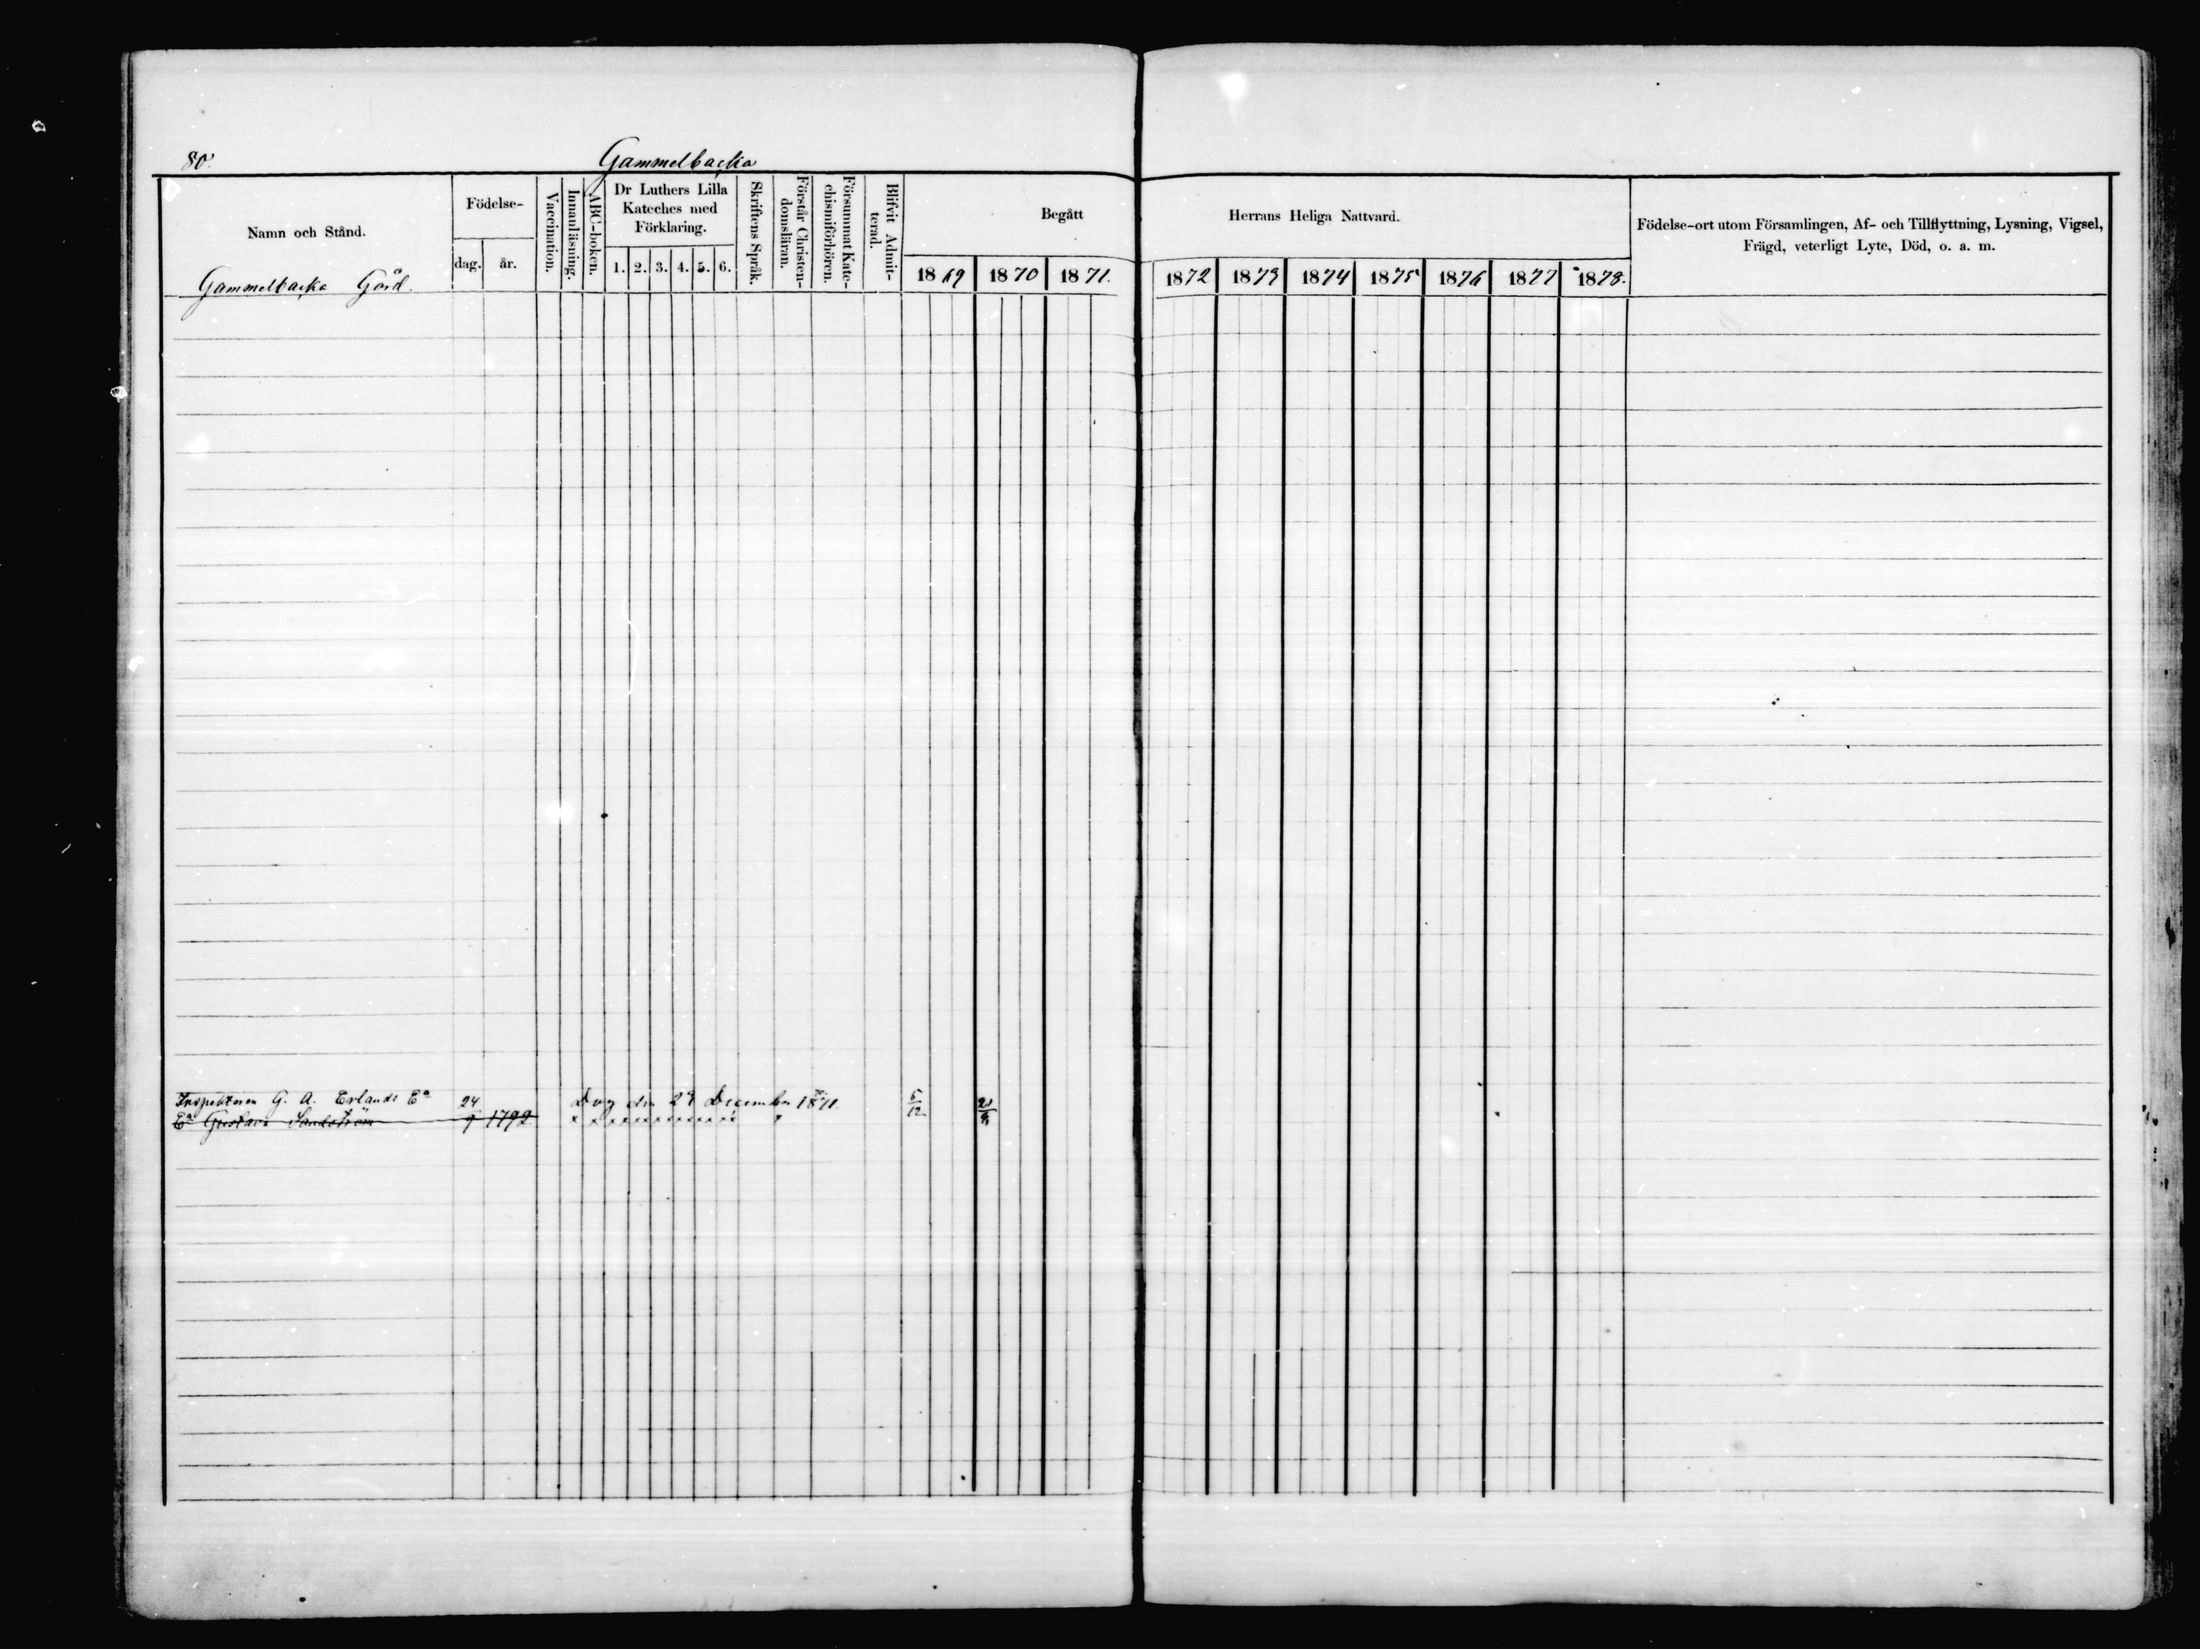 80.
Gammelbacka
Namn och Stånd.
Födelse-
dag. år.
Vaccination.
Innanläsning.
ABC-boken.
Dr Luthers Lilla
Kateches med
Förklaring.
1. 2. 3. 4. 5. 6.
Skriftens Språk.
Förstår Christen-
domsläran.
Försummat Kate-
chismiförhören.
Blifvit Admit-
terad.
Begått
Herrans Heliga Nattvard.
1869 1870 1871.
1872 1873 1874 1875 1876 1877 1878.
Födelse-ort utom Församlingen, Af- och Tillflyttning, Lysning, Vigsel,
Frägd, veterligt Lyte, Död, o. a. m.
Gammelbacka Gård.
Inspektoren G. A. Erlunds Ea
Ea Gustava Sandström 24/9 1792
Dog den 29 December 1871
5/12